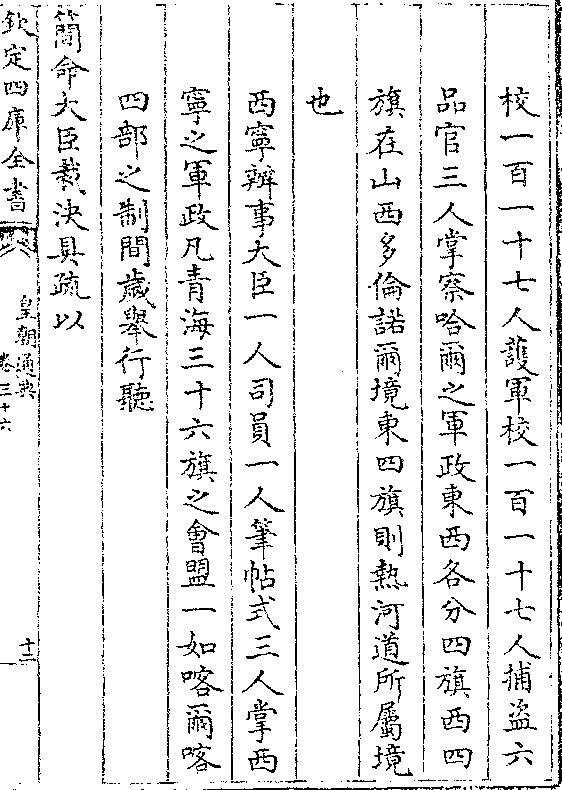 校一百一十七人護軍校一百一十七人捕盜六
品官三人掌察哈爾之軍政東西各分四旗西四
旗在山西多倫諾爾境東四旗則熱河道所屬境
也
西寧辦事大臣一人司員一人筆帖式三人掌西
寧之軍政凡青海三十六旗之會盟一如喀爾喀
四部之制間歲舉行聽
簡命大臣裁決具疏以
欽定四庫全書
皇朝通典
卷三十六
十三